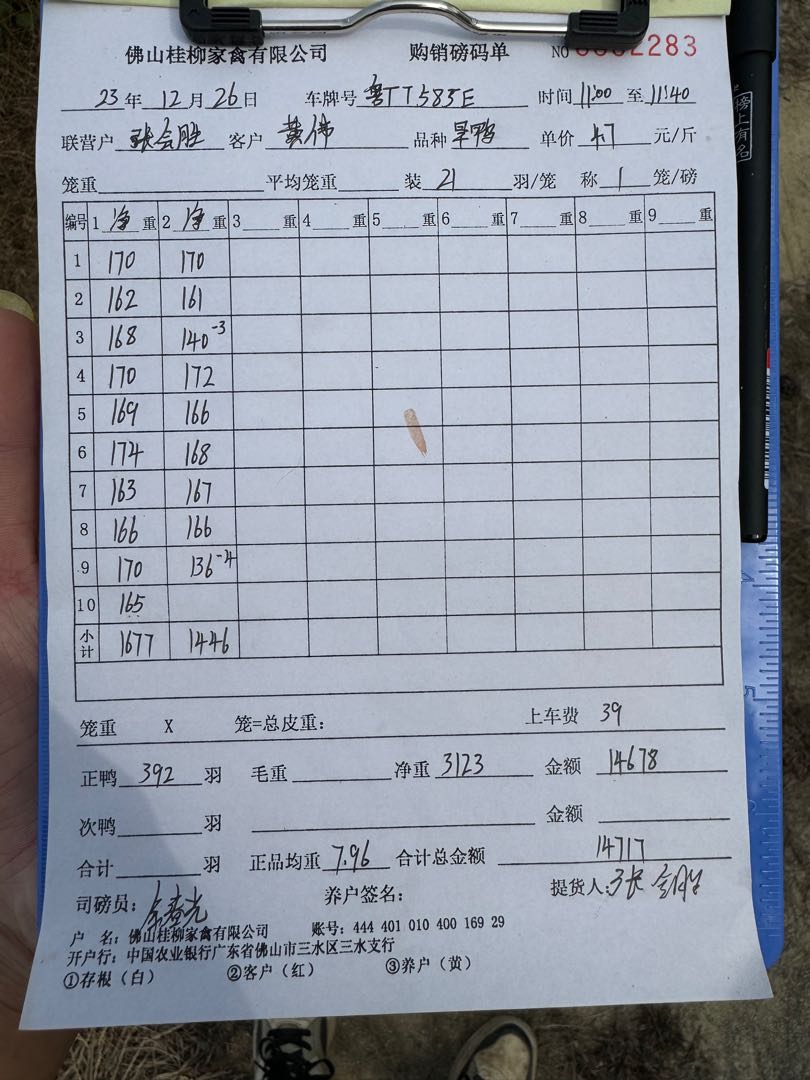 佛山桂柳家禽有限公司 购销磅码单 NO 0002283
23年 12月 26日 车牌号 粤TT583E 时间 11:00 至 11:40
联营户 张会胜 客户 黄伟 品种 旱鸭 单价 4.7 元/斤
笼重 平均笼重 装 21 羽/笼 称 1 笼/磅
编号 1 净 重 2 净 重 3 重 4 重 5 重 6 重 7 重 8 重 9 重
1 170 170
2 162 161
3 168 140-3
4 170 172
5 169 166
6 174 168
7 163 167
8 166 166
9 170 136-4
10 165
小计 1677 1446
笼重 X 笼=总皮重: 上车费 39
正鸭 392 羽 毛重 净重 3123 金额 14678
次鸭 羽 金额
合计 羽 正品均重 7.96 合计总金额 14717
司磅员: 养户签名: 提货人: 张会胜
户 名: 佛山桂柳家禽有限公司 账号: 444 401 010 400 169 29
开户行: 中国农业银行广东省佛山市三水区三水支行
①存根(白) ②客户(红) ③养户(黄)
榜上有名